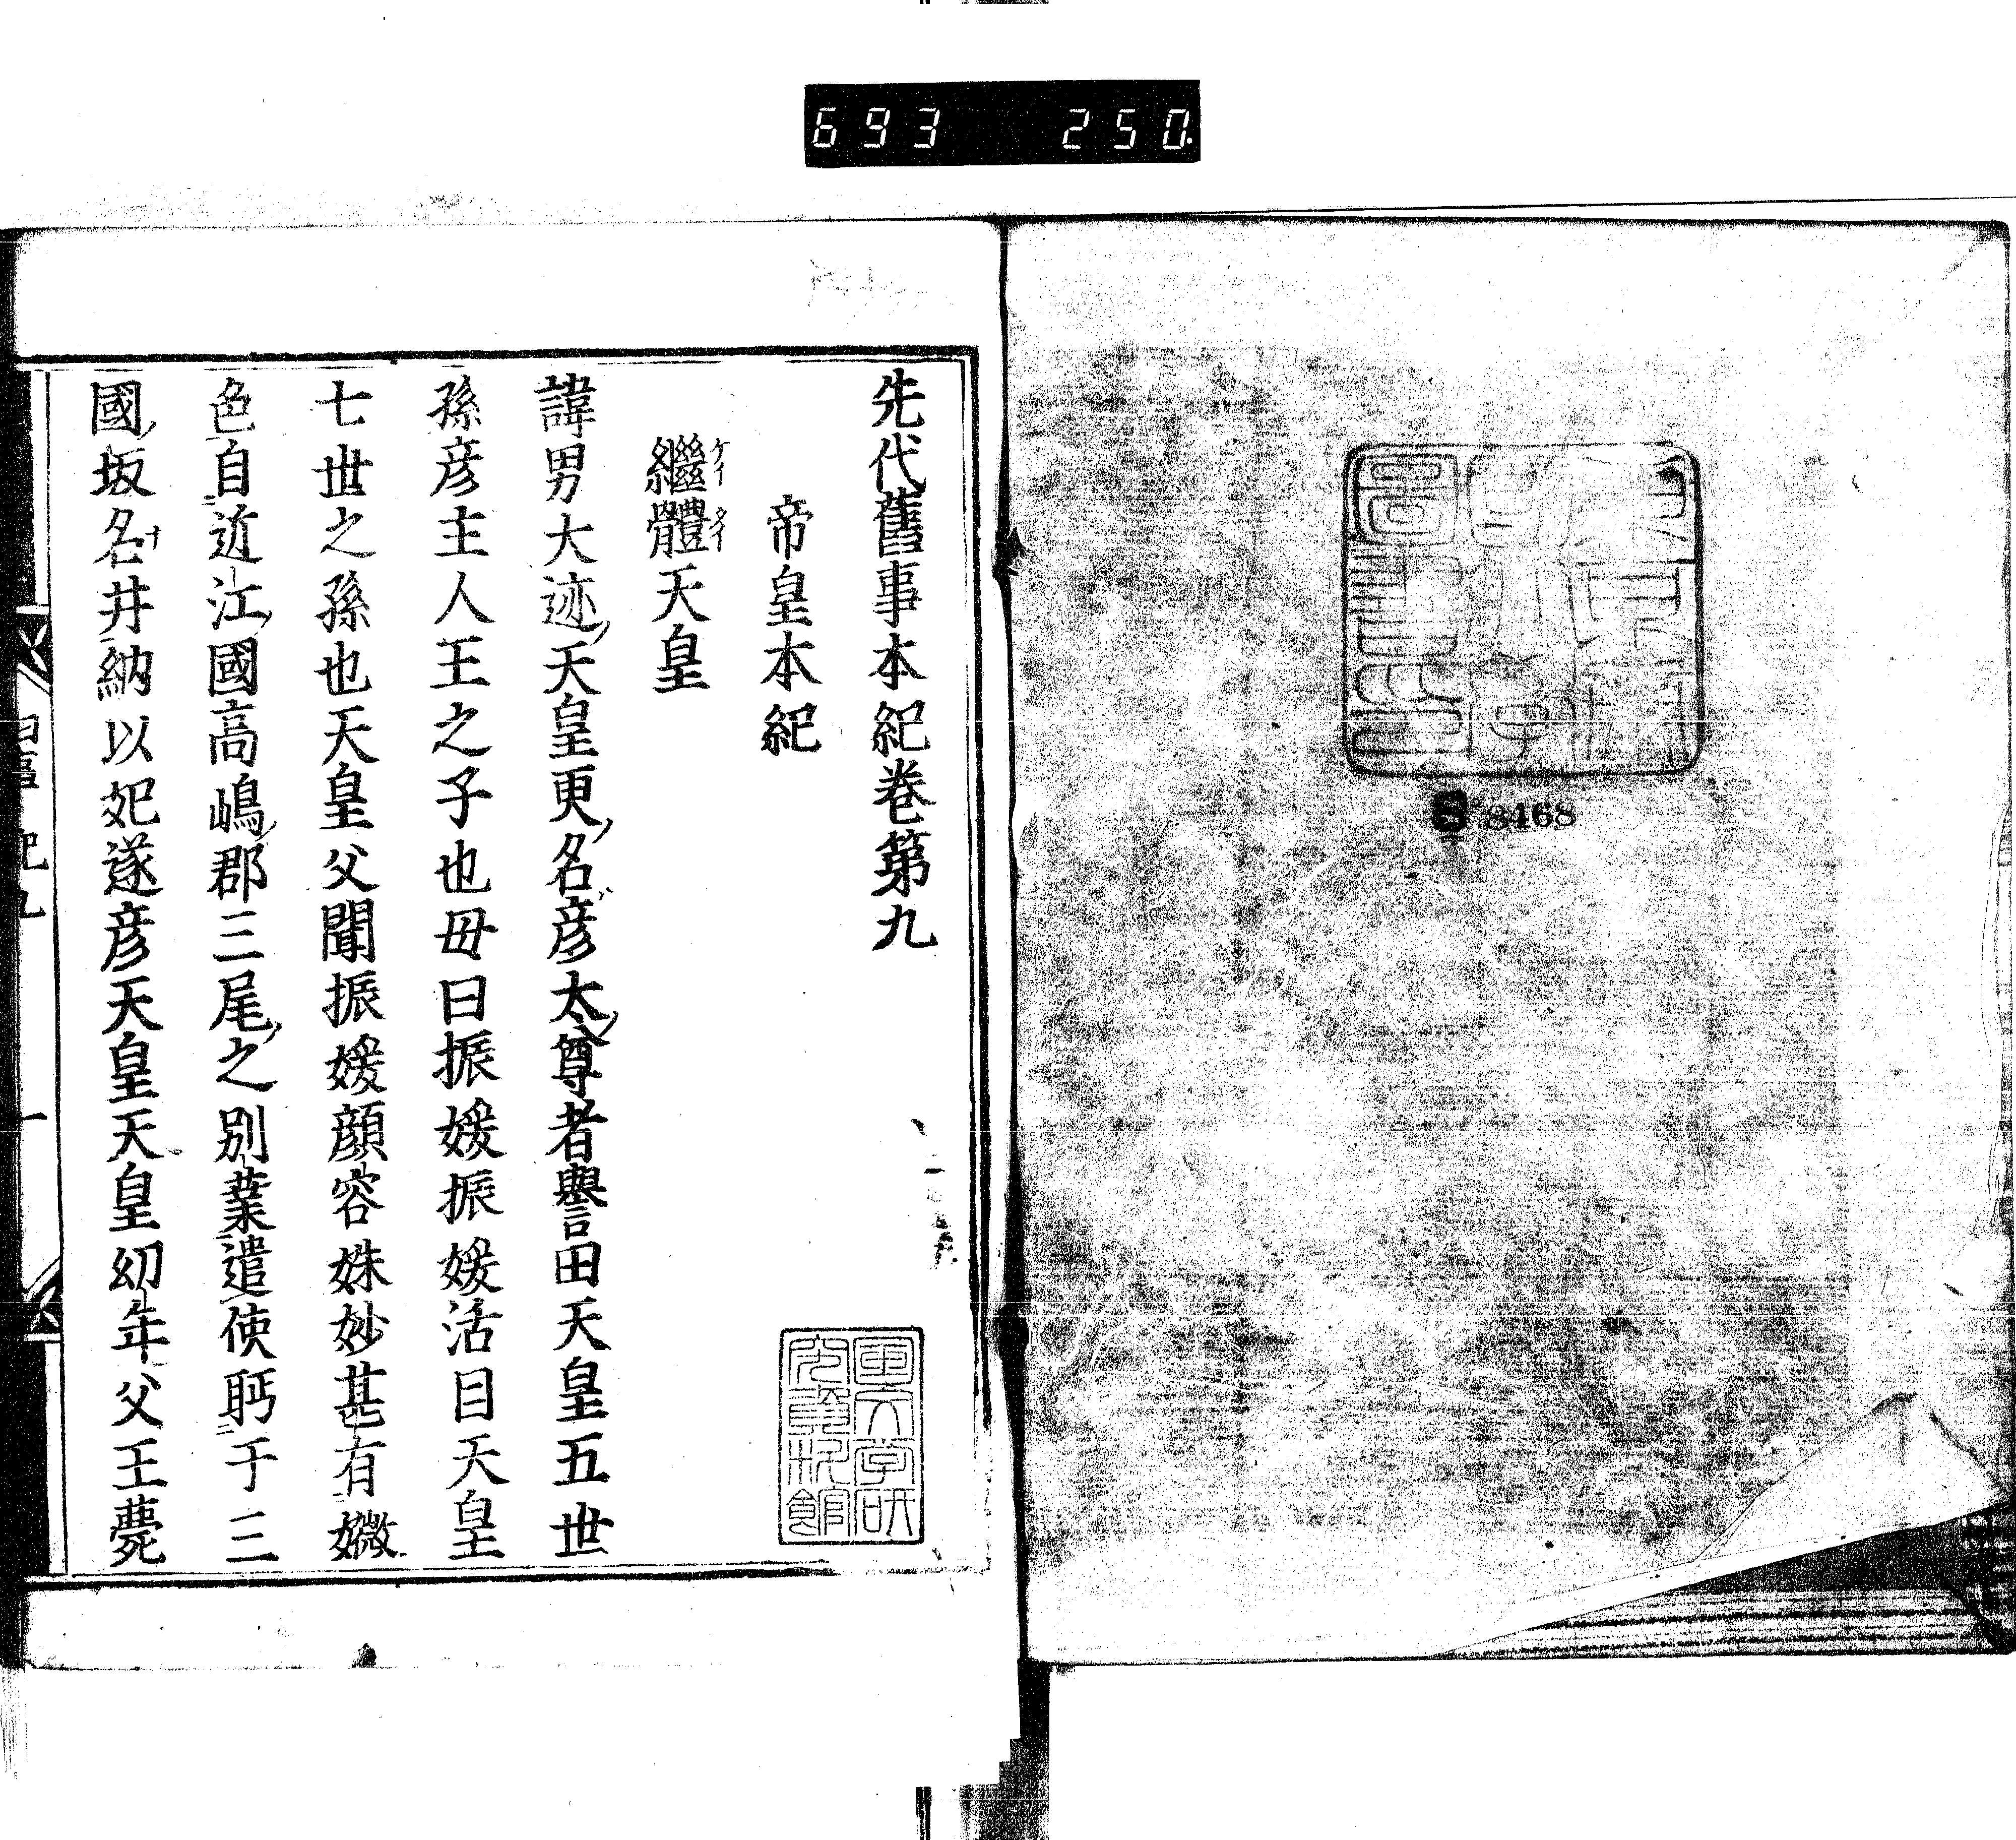 693 250.
8468
先代舊事本紀卷第九
帝皇本紀
繼體天皇
ケイ タイ
諱男大迹天皇更名彦太尊者譽田天皇五世
孫彦主人王之子也毋曰振媛振媛活目天皇
七世之孫也天皇父聞振媛顔容姝妙甚有媺
色自近江國高嶋郡三尾之別業遣使聘于三
國坂名井納以妃遂彦天皇天皇幼年父王薨
國文学研
究資料館